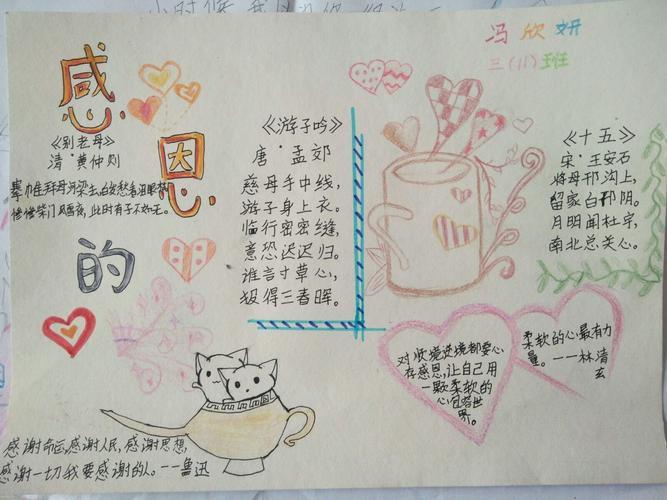 小时候
冯欣妍
三(11)班
感
恩
的
《别老母》
清·黄仲则
搴帷拜母河梁去,白发愁看泪眼枯
惨惨柴门风雪夜,此时有子不如无。
《游子吟》
唐·孟郊
慈母手中线,
游子身上衣。
临行密密缝,
意恐迟迟归。
谁言寸草心,
报得三春晖。
《十五》
宋·王安石
将母邗沟上,
留家白邗阴。
月明闻杜宇,
南北总关心。
对顺境逆境都要心
存感恩,让自己用
一颗柔软的
心包容世
界。
柔软的心最有力
量。——林清
玄
感谢命运,感谢人民,感谢思想,
感谢一切我要感谢的人。——鲁迅